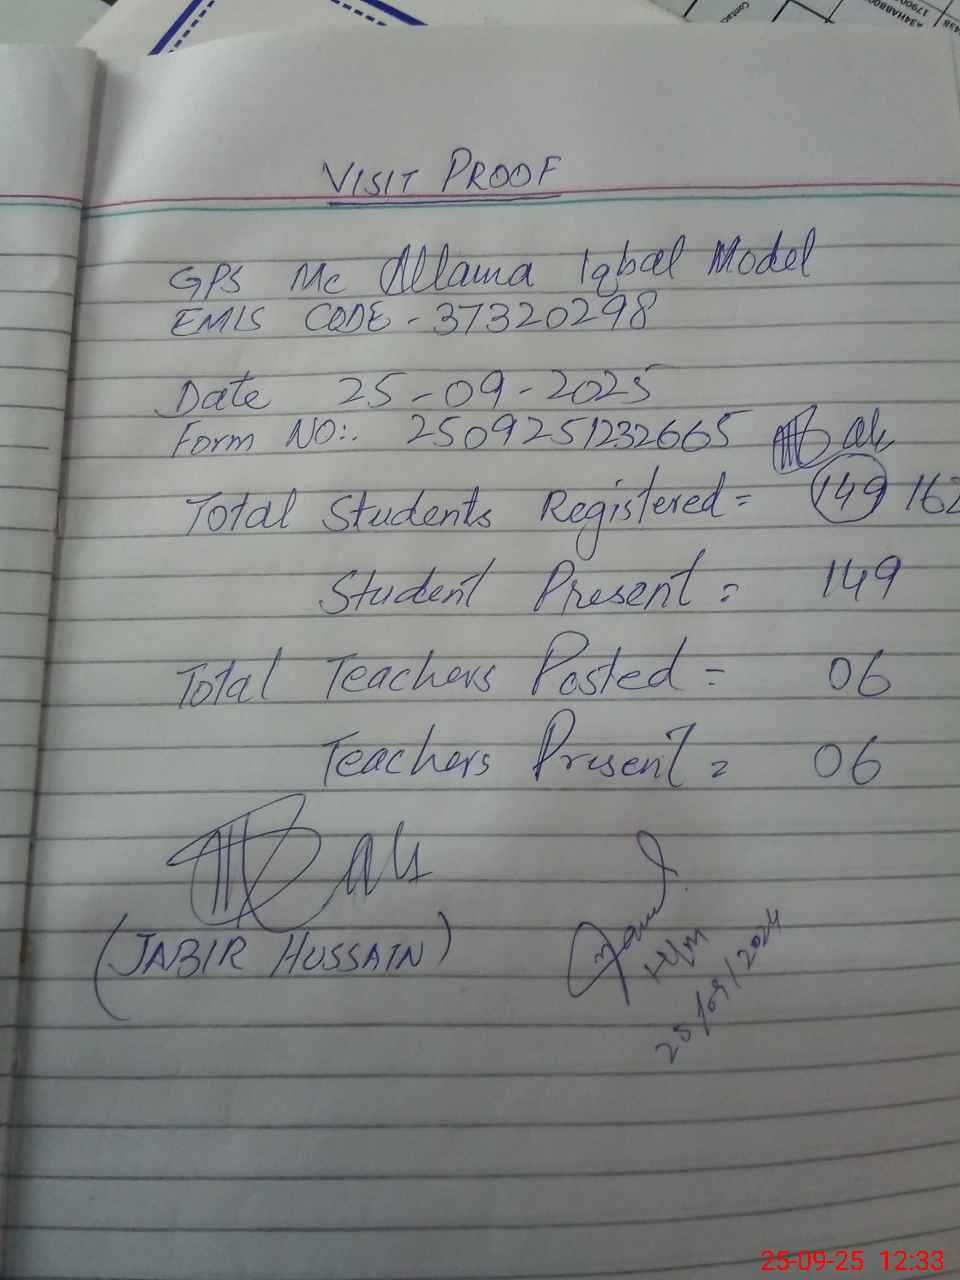 Contac
A34HABB00
1790
438
VISIT PROOF
GPS Mc Allama Iqbal Model
EMIS CODE - 37320298
Date 25-09-2025
Form NO:. 2509251232665
Total Students Registered = 149 162
Student Present = 149
Total Teachers Posted = 06
Teachers Present = 06
(JABIR HUSSAIN)
H/m
25/09/2024
25-09-25 12:33